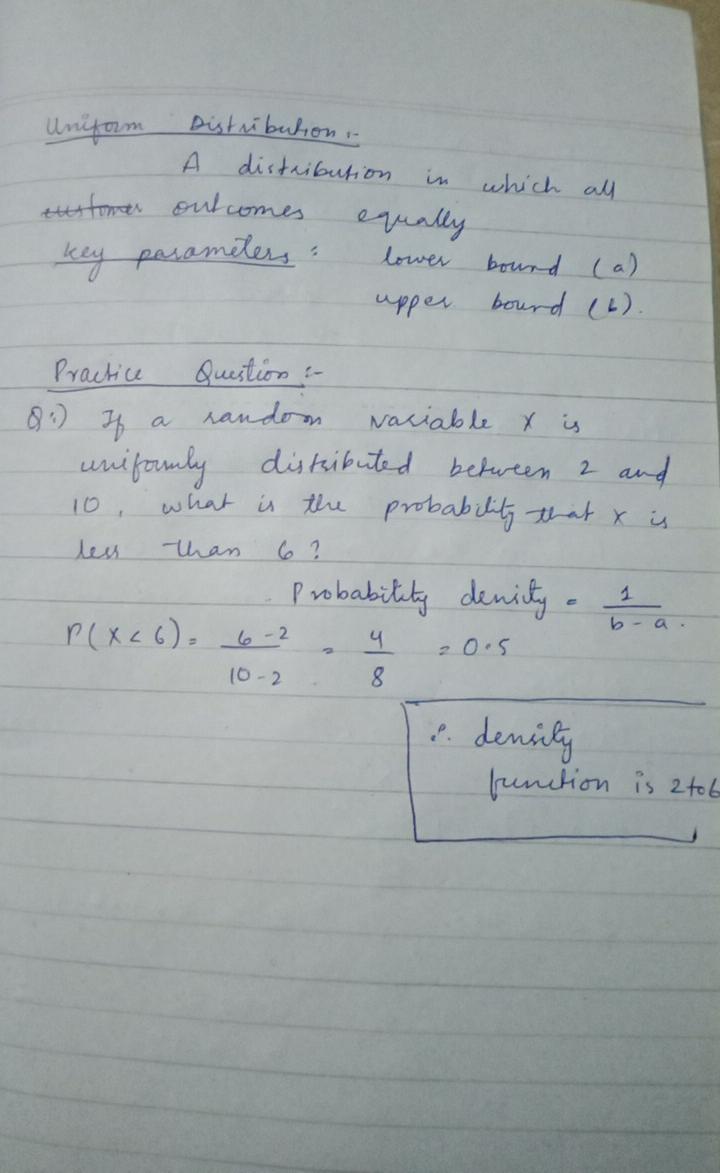 Uniform Distribution :-
A distribution in which all
customer outcomes equally
key parameters : lower bound (a)
upper bound (b).
Practice Question :-
Q:) If a random variable X is
uniformly distributed between 2 and
10, what is the probability that X is
less than 6 ?
Probability denity = 1/b-a.
P(X<6) = 6-2/10-2 = 4/8 = 0.5
∴ density
function is 2 to 6